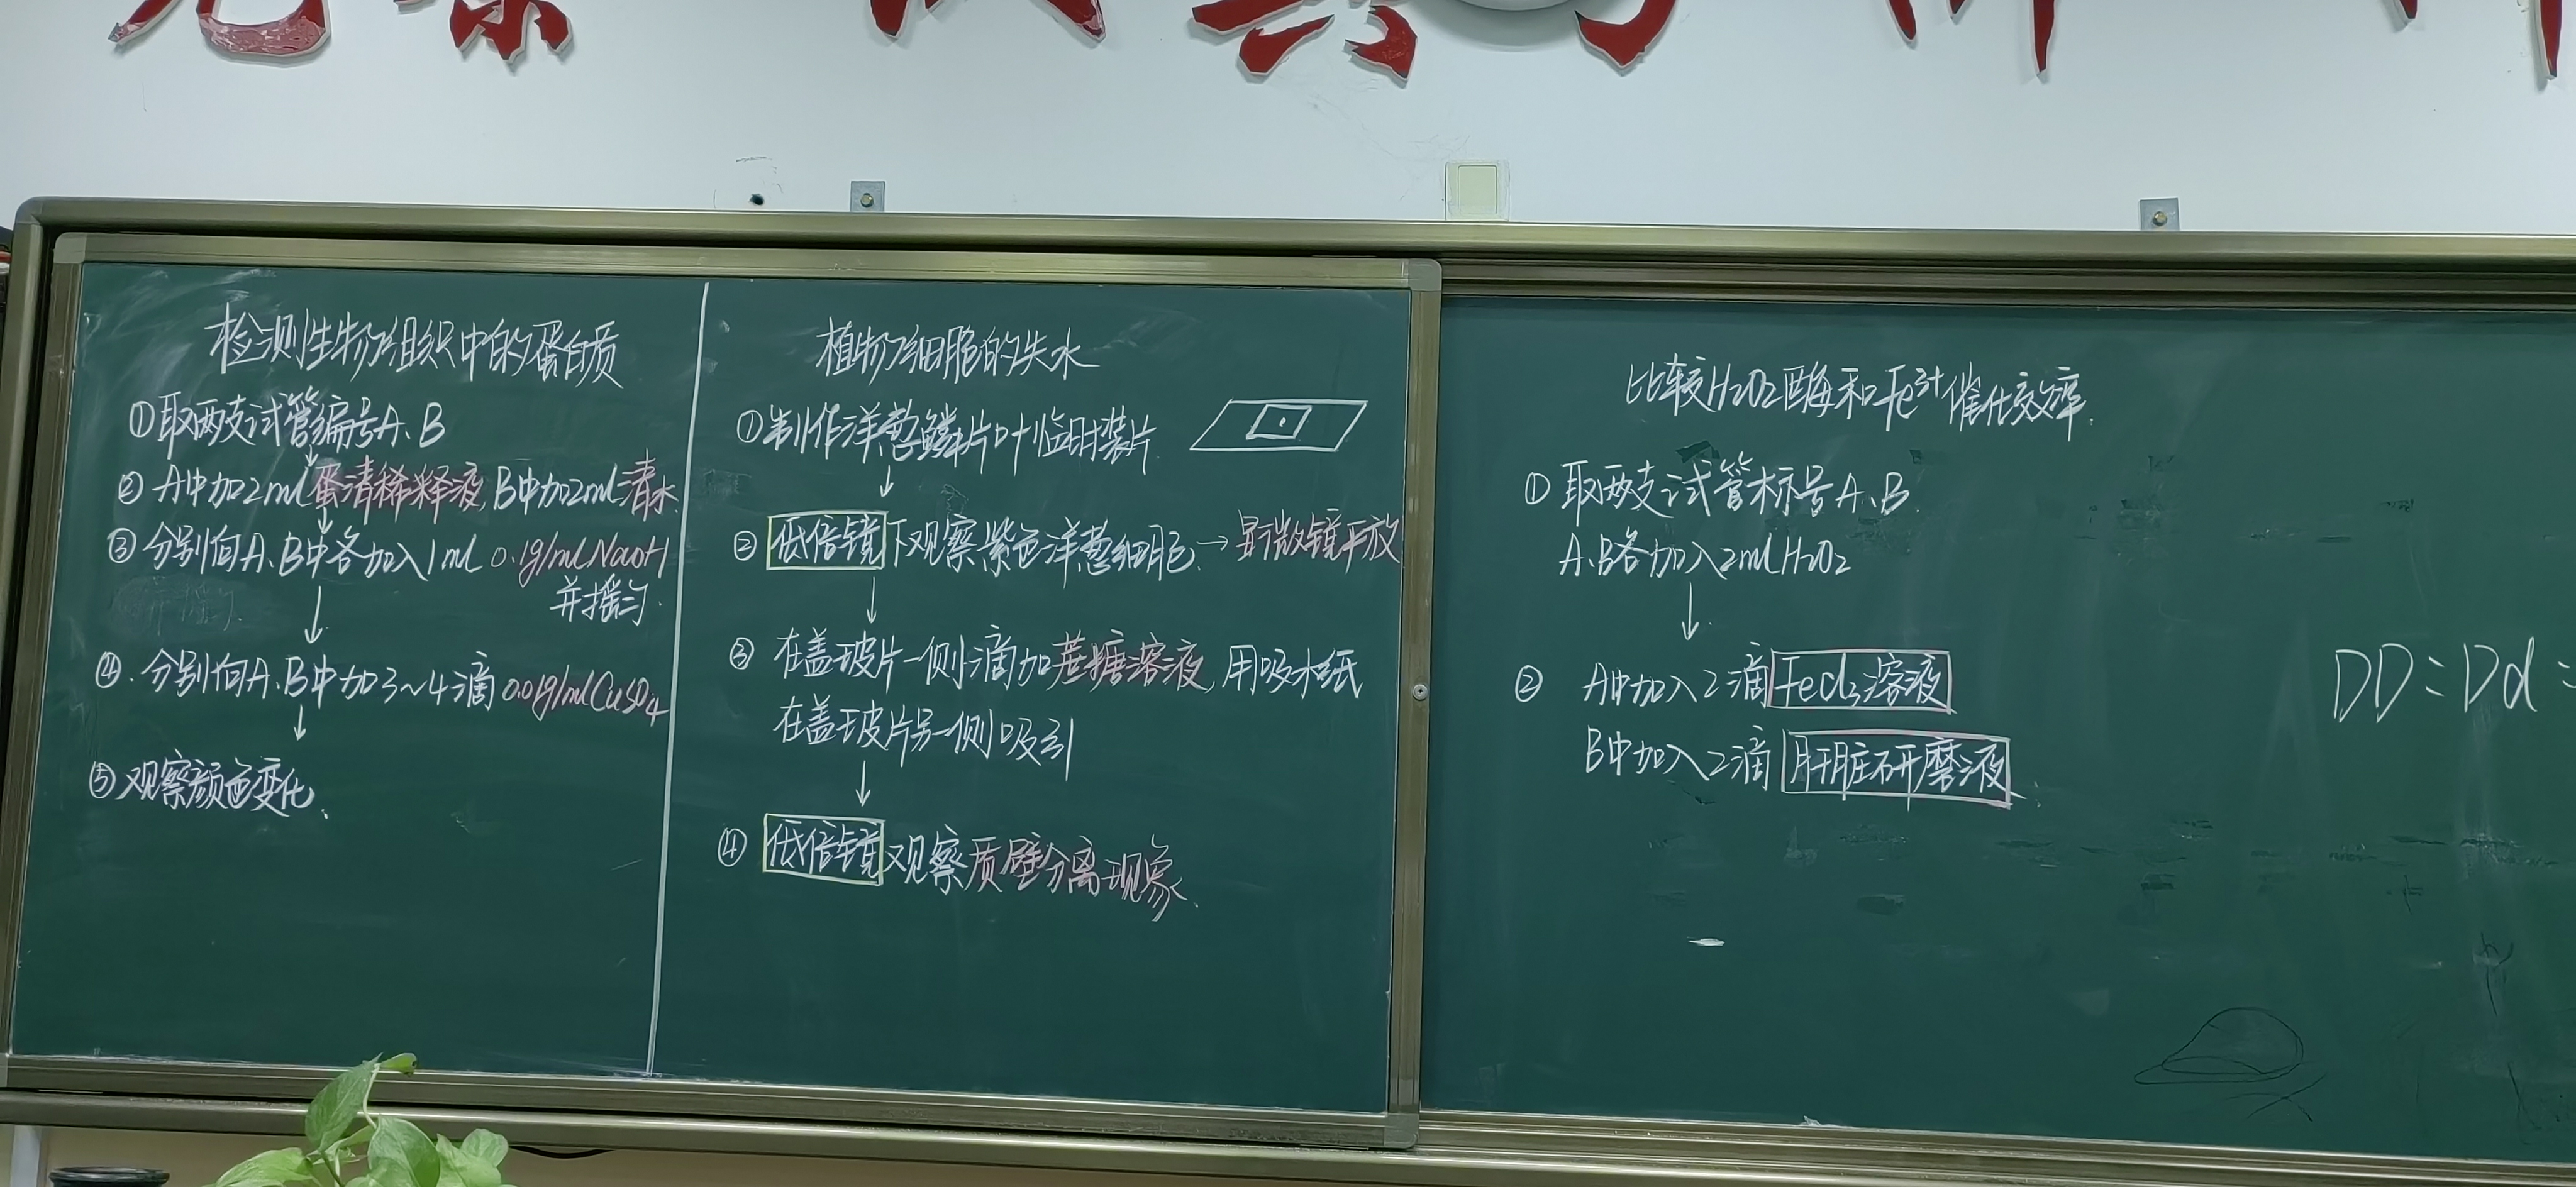 检测生物组织中的蛋白质
①取两支试管编号A、B
②A中加2ml蛋清稀释液,B中加2ml清水.
③分别向A、B中各加入1ml 0.1g/mlNaOH
并摇匀.
④.分别向A、B中加3~4滴0.01g/mlCuSO4
⑤观察颜色变化.
植物细胞的失水
①制作洋葱鳞片叶临时装片
②低倍镜下观察紫色洋葱细胞.→显微镜平放
③在盖玻片一侧滴加蔗糖溶液,用吸水纸
在盖玻片另一侧吸引
④低倍镜观察质壁分离现象.
比较H2O2酶和Fe3+催化效率.
①取两支试管标号A、B.
A、B各加入2mlH2O2
②A中加入2滴FeCl3溶液
B中加入2滴肝脏研磨液.
DD:Dd: